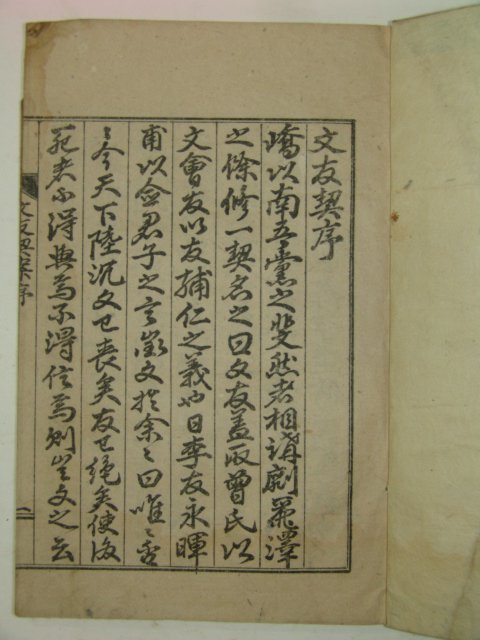 文友契序
嶠以南吾黨之斐然者相講劘菟潭
之條修一契名之曰文友盖取曾氏以
文會友以友輔仁之義也日李友永暉
甫以僉君子之言徵文於余〻曰唯〻否
〻今天下陸沉文已喪矣友已絶矣使後
死者不得與焉不得信焉則豈文之云
文友契案序